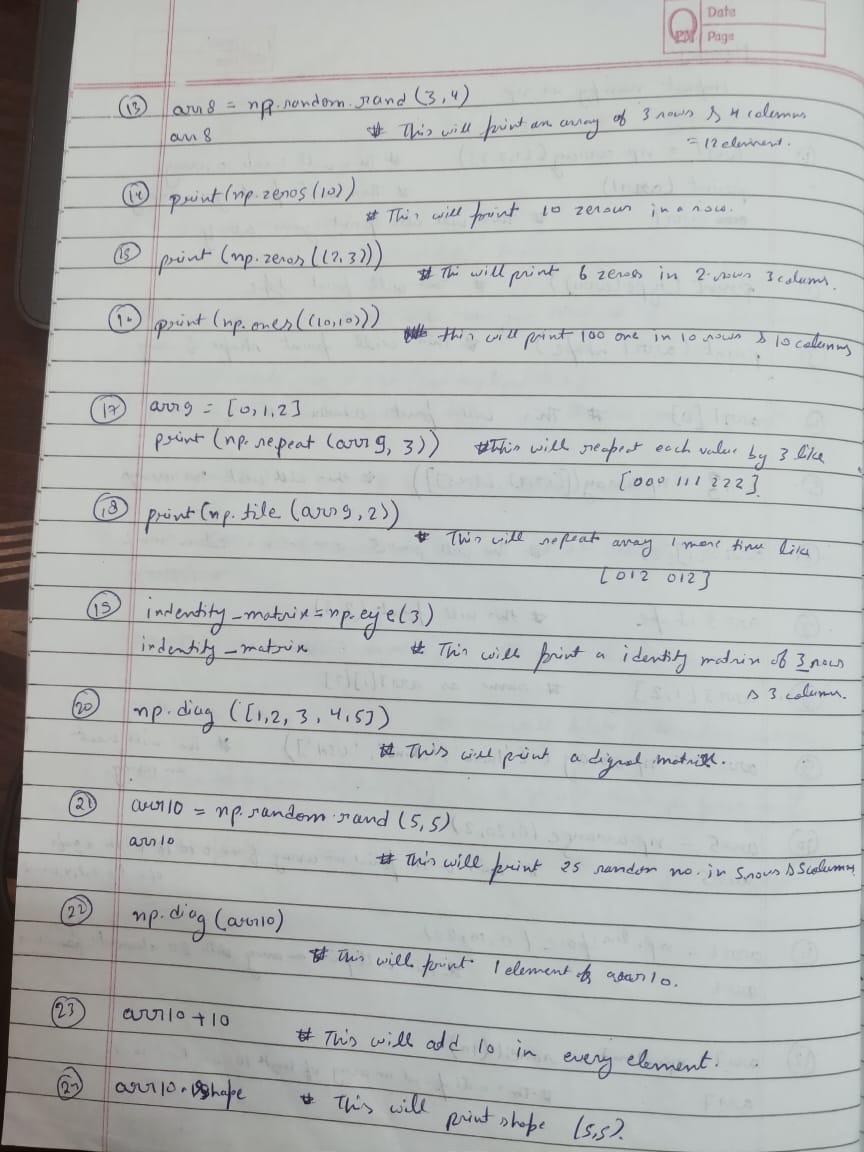 Date
Page
(13) arr8 = np.random.rand(3,4)
arr8 # This will print an array of 3 rows & 4 columns
= 12 element.
(14) print(np.zeros(10))
# This will print 10 zeroes in a row.
(15) print(np.zeros((2,3)))
# Thi will print 6 zeros in 2 rows 3 colums.
print(np.ones((10,10)))
this will print 100 one in 10 rows & 10 columns
(17) arr9 = [0,1,2]
print(np.repeat(arr9, 3)) # This will reapeat each value by 3 like
[000 111 222]
(18) print(np.tile(arr9,2))
# This will repeat array 1 more time like
[012 012]
(19) indentity_matrix = np.eye(3)
indentity_matrix # This will print a identity matrix of 3 rows
& 3 column.
(20) np.diag([1,2,3,4,5])
# This will print a dignal matrix.
(21) arr10 = np.random.rand(5,5)
arr10
# This will print 25 random no. in 5 rows & 5 columns
(22) np.diag(arr10)
# This will print 1 element of arr10.
(23) arr10 + 10
# This will add 10 in every element.
arr10.shape # This will print shape (5,5).